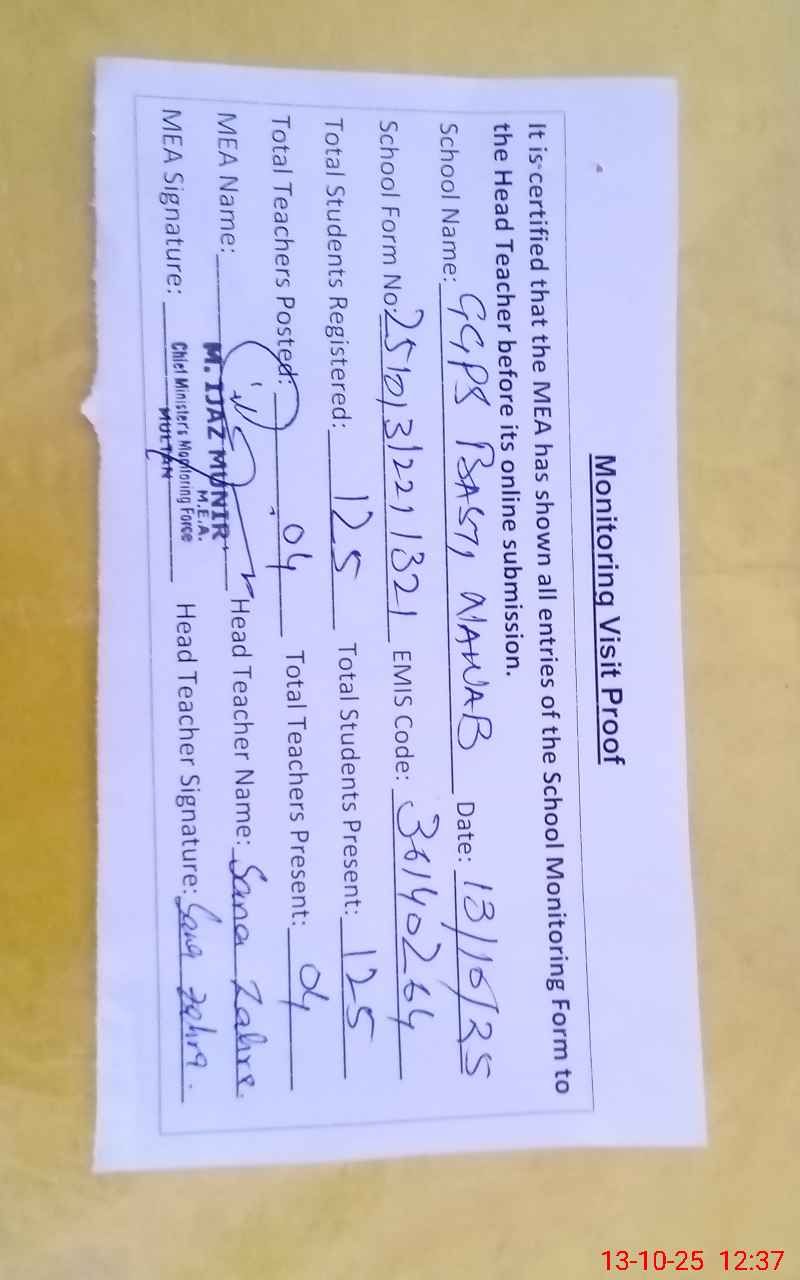 Monitoring Visit Proof
It is certified that the MEA has shown all entries of the School Monitoring Form to
the Head Teacher before its online submission.
School Name: GGPS BASTI NAWAB Date: 13/10/25
School Form No: 2510131221321 EMIS Code: 36140264
Total Students Registered: 125 Total Students Present: 125
Total Teachers Posted: 04 Total Teachers Present: 04
MEA Name: M. IJAZ MUNIR Head Teacher Name: Sana Zahra
M.E.A.
MEA Signature: Chief Minister's Monitoring Force Head Teacher Signature: Sana Zahra.
MULTAN
13-10-25 12:37